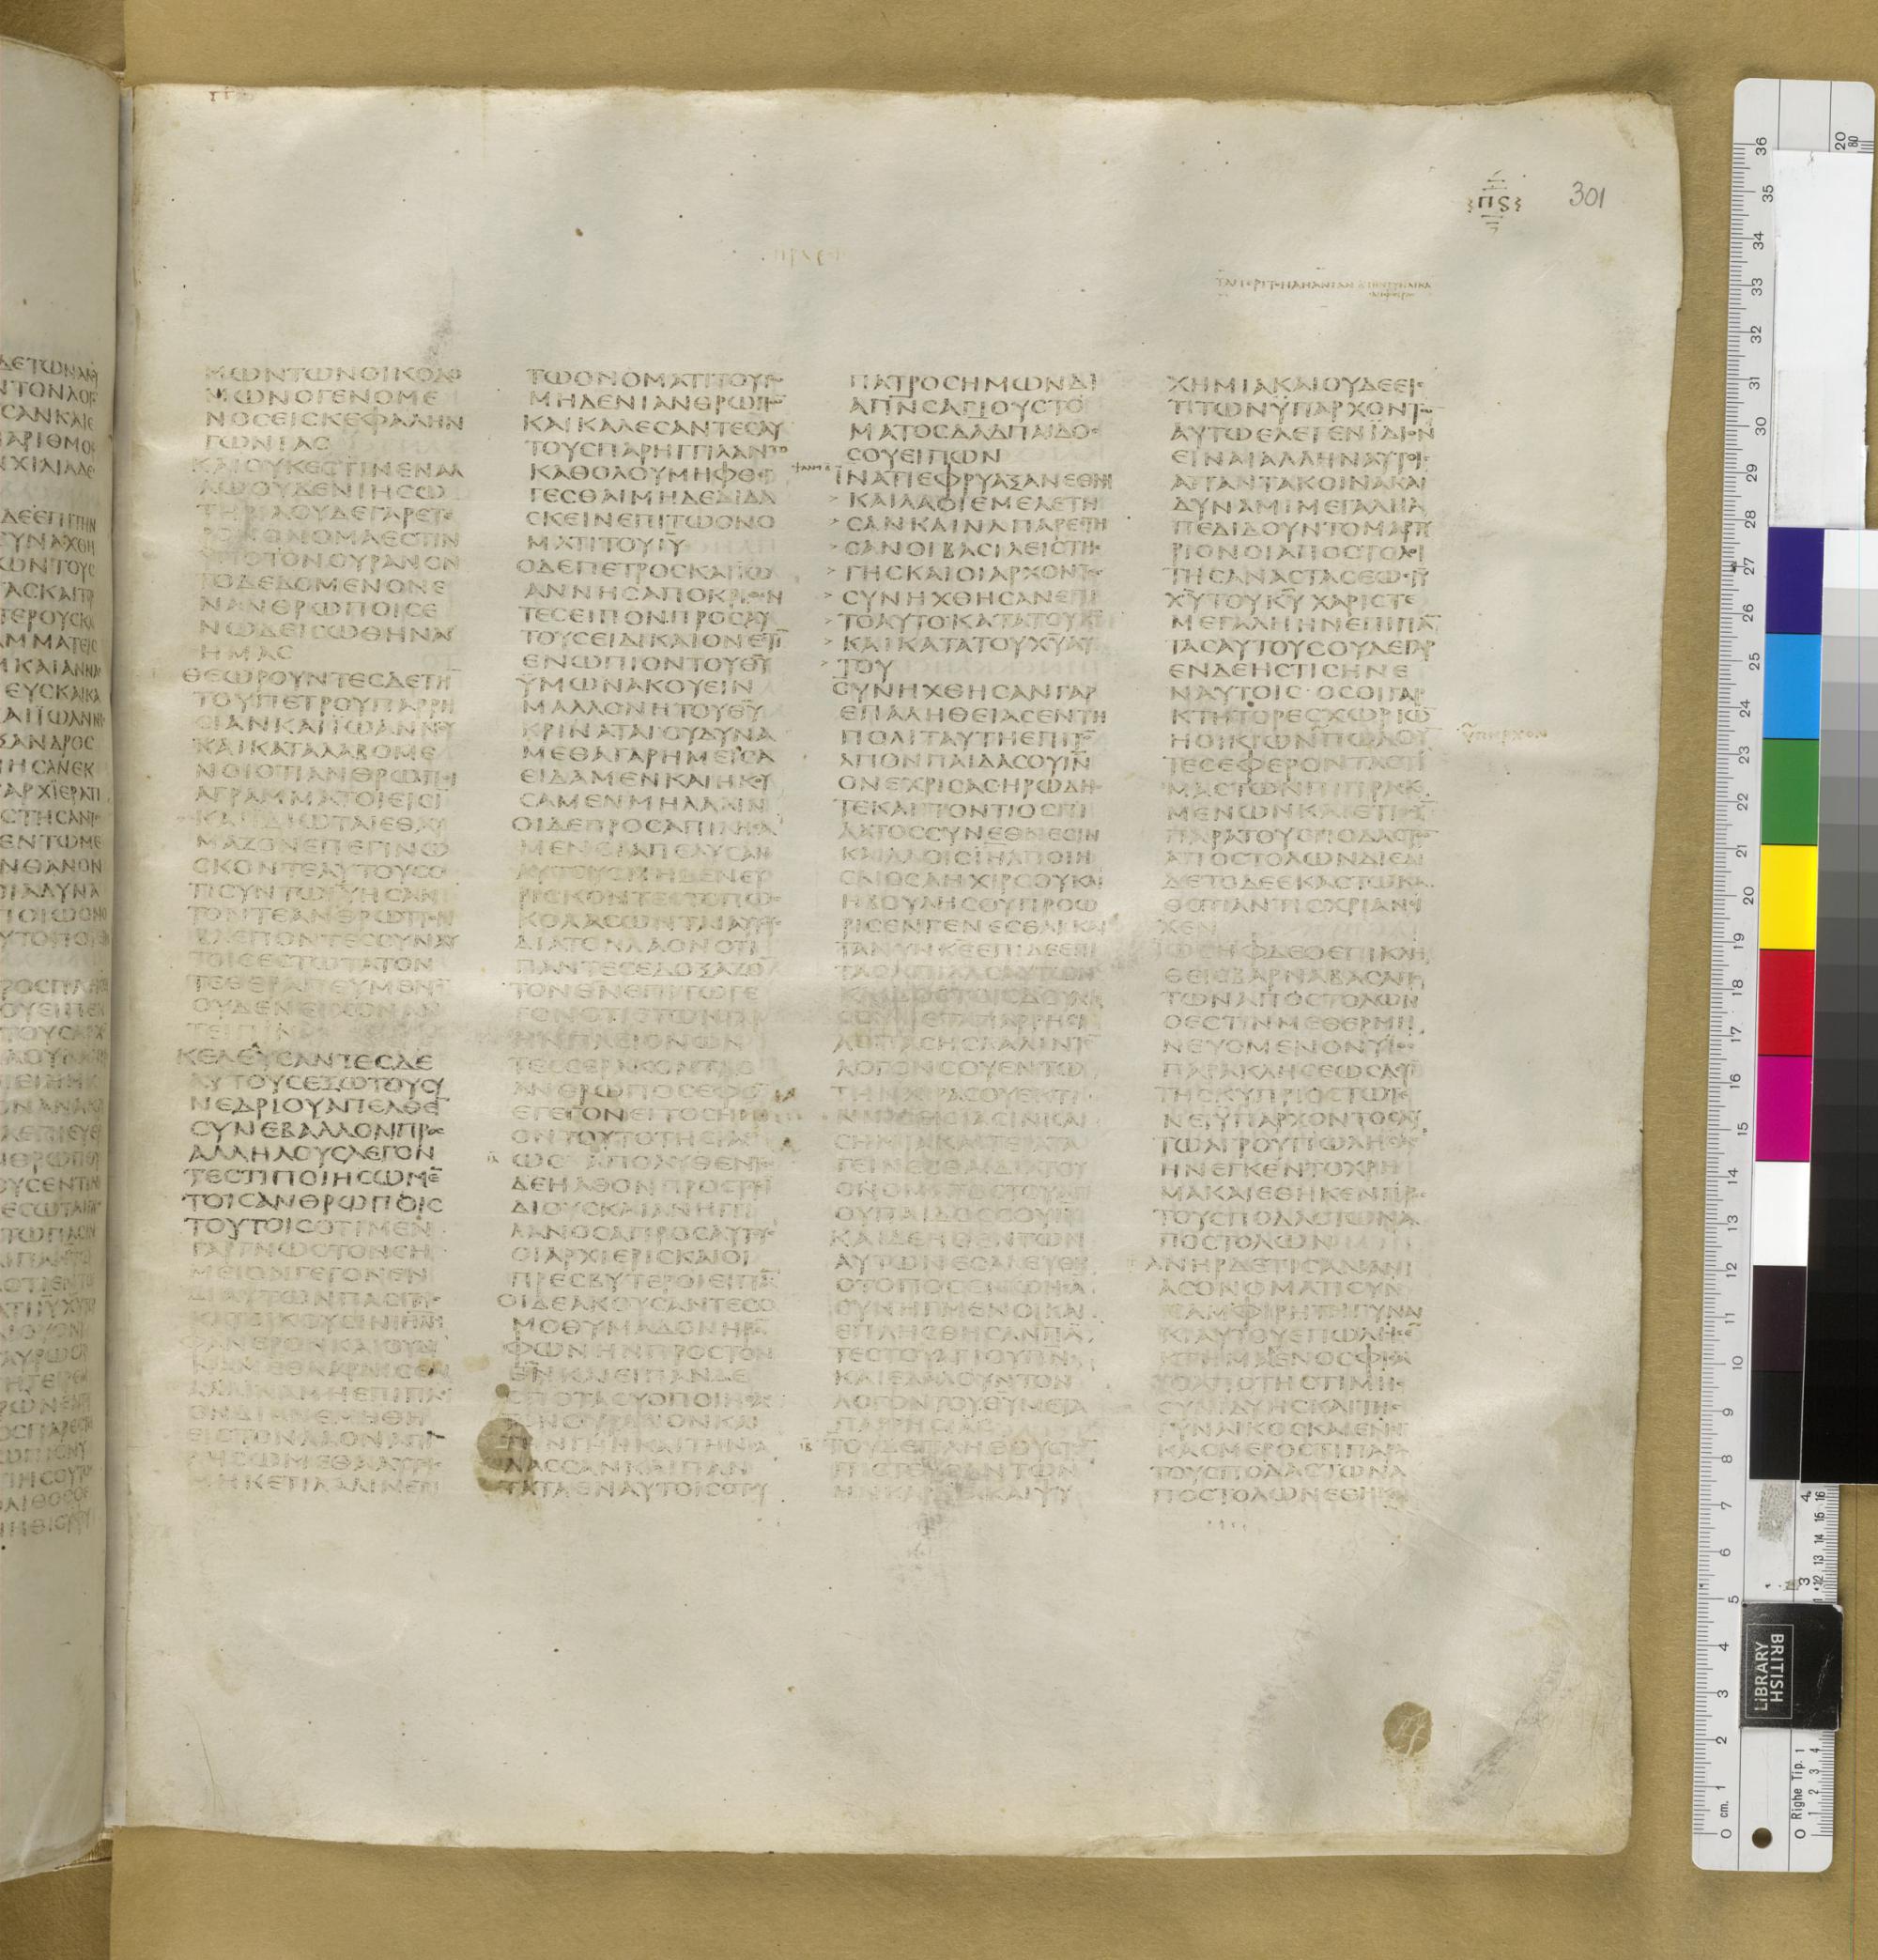 301
ΠS
ΠΡΑΞΙϹ
ΜΩΝΤΩΝΟΙΚΟΔΟ
ΜΩΝΟΓΕΝΟΜΕ
ΝΟϹΕΙϹΚΕΦΑΛΗΝ
ΓΩΝΙΑϹ
ΚΑΙΟΥΚΕϹΤΙΝΕΝΑΛ
ΛΩΟΥΔΕΝΙΗϹΩ
ΤΗΡΙΑΟΥΔΕΓΑΡΕΤΕ
ΡΟΝΟΝΟΜΑΕϹΤΙΝ
ΫΠΟΤΟΝΟΥΡΑΝΟΝ
ΤΟΔΕΔΟΜΕΝΟΝΕ
ΝΑΝΘΡΩΠΟΙϹΕ
ΝΩΔΕΙϹΩΘΗΝΑΙ
ΗΜΑϹ
ΘΕΩΡΟΥΝΤΕϹΔΕΤΗ
ΤΟΥΠΕΤΡΟΥΠΑΡΡΗ
ϹΙΑΝΚΑΙΪΩΑΝΝΟΥ
ΚΑΙΚΑΤΑΛΑΒΟΜΕ
ΝΟΙΟΤΙΑΝΘΡΩΠΟΙ
ΑΓΡΑΜΜΑΤΟΙΕΙϹΙ
ΚΑΙΪΔΙΩΤΑΙΕΘΑΥ
ΜΑΖΟΝΕΠΕΓΙΝΩ
ϹΚΟΝΤΕΑΥΤΟΥϹΟ
ΤΙϹΥΝΤΩΙΥΗϹΑΝ
ΤΟΝΤΕΑΝΘΡΩΠΟΝ
ΒΛΕΠΟΝΤΕϹϹΥΝΑΥ
ΤΟΙϹΕϹΤΩΤΑΤΟΝ
ΤΕΘΕΡΑΠΕΥΜΕΝΟ
ΟΥΔΕΝΕΙΧΟΝΑΝ
ΤΕΙΠΙΝ
ΚΕΛΕΥϹΑΝΤΕϹΔΕ
ΑΥΤΟΥϹΕΞΩΤΟΥϹΥ
ΝΕΔΡΙΟΥΑΠΕΛΘΕ
ϹΥΝΕΒΑΛΛΟΝΠΡΟϹ
ΑΛΛΗΛΟΥϹΛΕΓΟΝ
ΤΕϹΤΙΠΟΙΗϹΩΜΕ̅
ΤΟΙϹΑΝΘΡΩΠΟΙϹ
ΤΟΥΤΟΙϹΟΤΙΜΕΝ
ΓΑΡΓΝΩϹΤΟΝϹΗ
ΜΕΙΟΝΓΕΓΟΝΕΝ
ΔΙΑΥΤΩΝΠΑϹΙΤΟΙϹ
ΚΑΤΟΙΚΟΥϹΙΝΙΗΛΜ
ΦΑΝΕΡΟΝΚΑΙΟΥΔΥ
ΝΑΜΕΘΑΑΡΝΙϹΘΑΙ
ΑΛΛΙΝΑΜΗΕΠΙΠΛΙ
ΟΝΔΙΑΝΕΜΗΘΗ
ΕΙϹΤΟΝΛΑΟΝΑΠΙ
ΛΗϹΩΜΕΘΑΑΥΤΟΙϹ
ΜΗΚΕΤΙΛΑΛΙΝΕΠΙ
ΤΩΟΝΟΜΑΤΙΤΟΥΤΩ
ΜΗΔΕΝΙΑΝΘΡΩΠΩ
ΚΑΙΚΑΛΕϹΑΝΤΕϹΑΥ
ΤΟΥϹΠΑΡΗΓΓΙΛΑΝΤΟ
ΚΑΘΟΛΟΥΜΗΦΘΕΓ
ΓΕϹΘΑΙΜΗΔΕΔΙΔΑ
ϹΚΕΙΝΕΠΙΤΩΟΝΟ
ΜΑΤΙΤΟΥΙΥ̅
ΟΔΕΠΕΤΡΟϹΚΑΙΪΩ
ΑΝΝΗϹΑΠΟΚΡΙΘΕΝ
ΤΕϹΕΙΠΟΝΠΡΟϹΑΥ
ΤΟΥϹΕΙΔΙΚΑΙΟΝΕϹΤΙ
ΕΝΩΠΙΟΝΤΟΥΘΥ̅
ΫΜΩΝΑΚΟΥΕΙΝ
ΜΑΛΛΟΝΗΤΟΥΘΥ̅
ΚΡΙΝΑΤΑΙΟΥΔΥΝΑ
ΜΕΘΑΓΑΡΗΜΕΙϹΑ
ΕΙΔΑΜΕΝΚΑΙΗΚΟΥ
ϹΑΜΕΝΜΗΛΑΛΙΝ
ΟΙΔΕΠΡΟϹΑΠΙΛΗϹΑ
ΜΕΝΟΙΑΠΕΛΥϹΑΝ
ΑΥΤΟΥϹΜΗΔΕΝΕΥ
ΡΙϹΚΟΝΤΕϹΤΟΠΩϹ
ΚΟΛΑϹΩΝΤΑΙΑΥΤΟΥϹ
ΔΙΑΤΟΝΛΑΟΝΟΤΙ
ΠΑΝΤΕϹΕΔΟΞΑΖΟ
ΤΟΝΘΝ̅ΕΠΙΤΩΓΕ
ΓΟΝΟΤΙΕΤΩΝΓΑΡ
ΗΝΠΛΕΙΟΝΩΝ
ΤΕϹϹΕΡΑΚΟΝΤΑΟ
ΑΝΘΡΩΠΟϹΕΦΟ
ΕΓΕΓΟΝΕΙΤΟϹΗΜΙ
ΟΝΤΟΥΤΟΤΗϹΙΑϹ
ΩϹ ΑΠΟΛΥΘΕΝΤΕϹ
ΔΕΗΛΘΟΝΠΡΟϹΤΟΥϹ
ΔΙΟΥϹΚΑΙΑΝΗΓΓΙ
ΛΑΝΟϹΑΠΡΟϹΑΥΤΟΥϹ
ΟΙΑΡΧΙΕΡΙϹΚΑΙΟΙ
ΠΡΕϹΒΥΤΕΡΟΙΕΙΠΑ
ΟΙΔΕΑΚΟΥϹΑΝΤΕϹΟ
ΜΟΘΥΜΑΔΟΝΗΡΑ
ΦΩΝΗΝΠΡΟϹΤΟΝ
ΘΝ̅ΚΑΙΕΙΠΑΝΔΕ
ϹΠΟΤΑϹΥΟΠΟΙΗϹΑϹ
ΤΟΝΟΥΡΑΝΟΝΚΑΙ
ΤΗΝΓΗΝΚΑΙΤΗΝΘΑ
ΛΑϹϹΑΝΚΑΙΠΑΝ
ΤΑΤΑΕΝΑΥΤΟΙϹΟΤΟΥ
ΠΑΤΡΟϹΗΜΩΝΔΙ
ΑΠΝ̅ϹΑΓΙΟΥϹΤΟ
ΜΑΤΟϹΔΑΔΠΑΙΔΟϹ
ϹΟΥΕΙΠΩΝ
ΪΝΑΤΙΕΦΡΥΑΞΑΝΕΘΝΗ
> ΚΑΙΛΑΟΙΕΜΕΛΕΤΗ
> ϹΑΝΚΑΙΝΑΠΑΡΕϹΤΗ
> ϹΑΝΟΙΒΑϹΙΛΕΙϹΤΗϹ
> ΓΗϹΚΑΙΟΙΑΡΧΟΝΤΕϹ
> ϹΥΝΗΧΘΗϹΑΝΕΠΙ
> ΤΟΑΥΤΟΚΑΤΑΤΟΥΚΥ̅
> ΚΑΙΚΑΤΑΤΟΥΧΥ̅ΑΥ
> ΤΟΥ
ϹΥΝΗΧΘΗϹΑΝΓΑΡ
ΕΠΑΛΗΘΕΙΑϹΕΝΤΗ
ΠΟΛΙΤΑΥΤΗΕΠΙΤΟ
ΑΓΙΟΝΠΑΙΔΑϹΟΥΙΝ̅
ΟΝΕΧΡΙϹΑϹΗΡΩΔΗϹ
ΤΕΚΑΙΠΟΝΤΙΟϹΠΙ
ΛΑΤΟϹϹΥΝΕΘΝΕϹΙΝ
ΚΑΙΛΑΟΙϹΙΗΛΠΟΙΗ
ϹΑΙΟϹΑΗΧΙΡϹΟΥΚΑΙ
ΗΒΟΥΛΗϹΟΥΠΡΟΩ
ΡΙϹΕΝΓΕΝΕϹΘΑΙΚΑΙ
ΤΑΝΥΝΚΕΕΠΙΔΕΕΠΙ
ΤΑϹΑΠΙΛΑϹΑΥΤΩΝ
ΚΑΙΔΟϹΤΟΙϹΔΟΥΛΟΙϹ
ϹΟΥΜΕΤΑΠΑΡΡΗϹΙ
ΑϹΠΑϹΗϹΛΑΛΙΝΤΟ
ΛΟΓΟΝϹΟΥΕΝΤΩ
ΤΗΝΧΙΡΑϹΟΥΕΚΤΙ
ϹΗΜΙΑΚΑΙΤΕΡΑΤΑ
ΓΕΙΝΕϹΘΑΙΔΙΑΤΟΥ
ΟΝΟΜΑΤΟϹΤΟΥΑΓΙ
ΟΥΠΑΙΔΟϹϹΟΥΙΥ̅
ΚΑΙΔΕΗΘΕΝΤΩΝ
ΑΥΤΩΝΕϹΑΛΕΥΘΗ
ΟΤΟΠΟϹΕΝΩΗϹΑ
ϹΥΝΗΓΜΕΝΟΙΚΑΙ
ΕΠΛΗϹΘΗϹΑΝΠΑ
ΤΕϹΤΟΥΑΓΙΟΥΠΝ̅Ϲ
ΚΑΙΕΛΑΛΟΥΝΤΟΝ
ΛΟΓΟΝΤΟΥΘΥ̅ΜΕΤΑ
ΠΑΡΡΗϹΙΑϹ
ΤΟΥΔΕΠΛΗΘΟΥϹΤΩ
ΠΙϹΤΕΥϹΑΝΤΩΝ
ΗΝΚΑΡΔΙΑΚΑΙΨΥ
ΧΗΜΙΑΚΑΙΟΥΔΕΕΙϹ
ΤΙΤΩΝΫΠΑΡΧΟΝΤΩ
ΑΥΤΩΕΛΕΓΕΝΪΔΙΟΝ
ΕΙΝΑΙΑΛΛΗΝΑΥΤΟΙϹ
ΑΠΑΝΤΑΚΟΙΝΑΚΑΙ
ΔΥΝΑΜΙΜΕΓΑΛΗΑ
ΠΕΔΙΔΟΥΝΤΟΜΑΡΤΥ
ΡΙΟΝΟΙΑΠΟϹΤΟΛΟΙ
ΤΗϹΑΝΑϹΤΑϹΕΩϹΙΥ̅
ΧΥ̅ΤΟΥΚΥ̅ΧΑΡΙϹΤΕ
ΜΕΓΑΛΗΗΝΕΠΙΠΑ̅
ΤΑϹΑΥΤΟΥϹΟΥΔΕΓΑΡ
ΕΝΔΕΗϹΤΙϹΗΝΕ
ΝΑΥΤΟΙϹ·ΟϹΟΙΓΑΡ
ΚΤΗΤΟΡΕϹΧΩΡΙΩ̅
ΗΟΙΚΙΩΝΠΩΛΟΥ̅
ΫΠΗΡΧΟΝ
ΤΕϹΕΦΕΡΟΝΤΑϹΤΙ
ΜΑϹΤΩΝΠΙΠΡΑΣΚΟ
ΜΕΝΩΝΚΑΙΕΤΙΘΟΥ̅
ΠΑΡΑΤΟΥϹΠΟΔΑϹΤΩ̅
ΑΠΟϹΤΟΛΩΝΔΙΕΔΙ
ΔΕΤΟΔΕΕΚΑϹΤΩΚΑ
ΘΟΤΙΑΝΤΙϹΧΡΙΑΝΙ
ΧΕΝ
ΪΩϹΗΦΔΕΟΕΠΙΚΛΗ
ΘΕΙϹΒΑΡΝΑΒΑϹΑΠΟ
ΤΩΝΑΠΟϹΤΟΛΩΝ
ΟΕϹΤΙΝΜΕΘΕΡΜΗ
ΝΕΥΟΜΕΝΟΝΥΙΟϹ
ΠΑΡΑΚΛΗϹΕΩϹΛΕΥΙ
ΤΗϹΚΥΠΡΙΟϹΤΩΓΕ
ΝΕΙΫΠΑΡΧΟΝΤΟϹΑΥ
ΤΩΑΓΡΟΥΠΩΛΗϹΑϹ
ΗΝΕΓΚΕΝΤΟΧΡΗ
ΜΑΚΑΙΕΘΗΚΕΝΠΡΟϹ
ΤΟΥϹΠΟΔΑϹΤΩΝΑ
ΠΟϹΤΟΛΩΝ
ΑΝΗΡΔΕΤΙϹΑΝΑΝΙ
ΑϹΟΝΟΜΑΤΙϹΥΝ
ϹΑΜΦΙΡΗΤΗΓΥΝΑΙ
ΚΙΑΥΤΟΥΕΠΩΛΗϹΕ̅
ΚΤΗΜΑΚΑΙΕΝΟϹΦΙϹΑ
ΤΟΑΠΟΤΗϹΤΙΜΗϹ
ϹΥΝΙΔΥΗϹΚΑΙΤΗϹ
ΓΥΝΑΙΚΟϹΚΑΙΕΝΕΓ
ΚΑϹΜΕΡΟϹΤΙΠΑΡΑ
ΤΟΥϹΠΟΔΑϹΤΩΝΑ
ΠΟϹΤΟΛΩΝΕΘΗΚΕ
BRITISH
LIBRARY